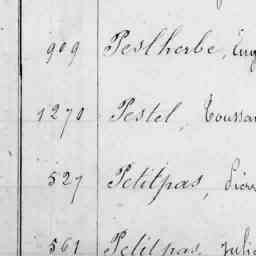 909 Peslherbe, Eug
1270 Pestel, Toussa
527 Petitpas, Pier
561 Petitpas, Julie